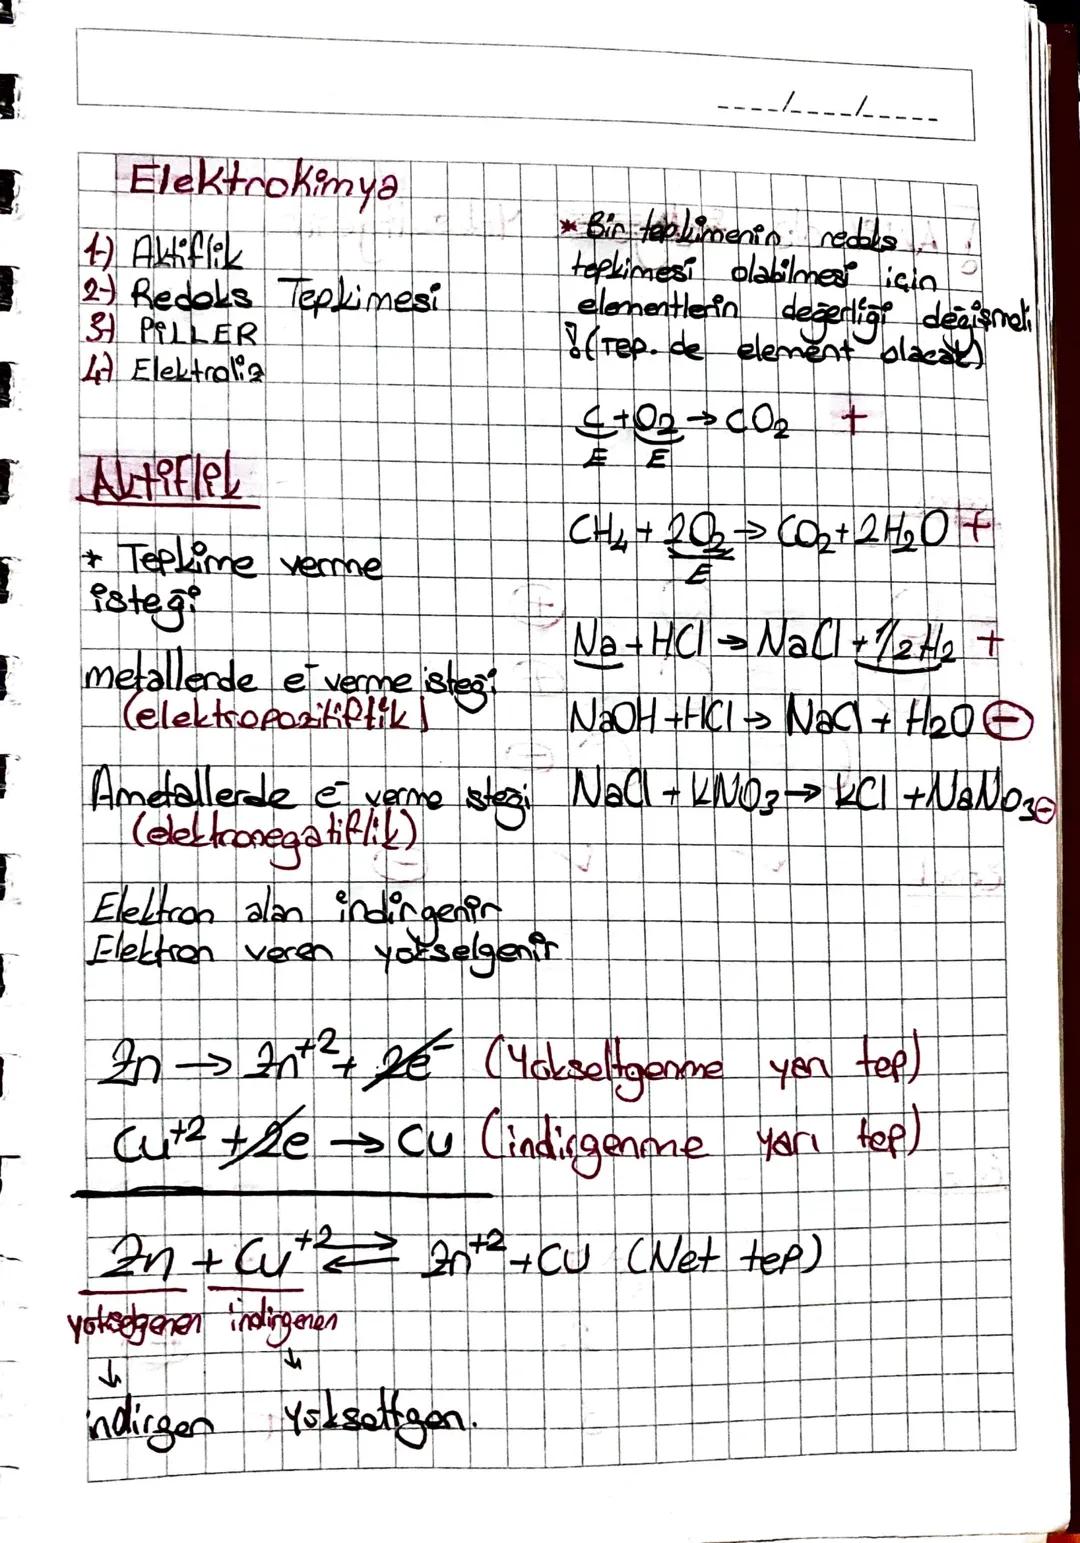 ----/----/-----
Elektrokimya
1-) Aktiflik
2-) Redoks Tepkimesi
3-) PİLLER
4-) Elektroliz
Aktiflik
* Tepkime verme
isteği
metallerde e⁻ verme isteği
(elektropozitiflik)
Ametallerde e⁻ verme isteği
(elektronegatiflik)
Elektron alan indirgenir
Elektron veren yükselgenir
* Bir tepkimenin redoks
tepkimesi olabilmesi için
elementlerin değerliği değişmeli
!(Tep. de element olacak)
C + O₂ → CO₂ +
E E
CH₄ + 2O₂ → CO₂ + 2H₂O +
E
Na + HCl → NaCl + 1/2 H₂ +
NaOH + HCl → NaCl + H₂O ⊖
NaCl + KNO₃ → KCl + NaNO₃ ⊖
Zn → Zn⁺² + 2e⁻ (Yükseltgenme yarı tep)
Cu⁺² + 2e → Cu (indirgenme yarı tep)
Zn + Cu⁺² ⇄ Zn⁺² + Cu (Net tep)
yükselgenen indirgenen
↓ ↓
indirgen yükseltgen.